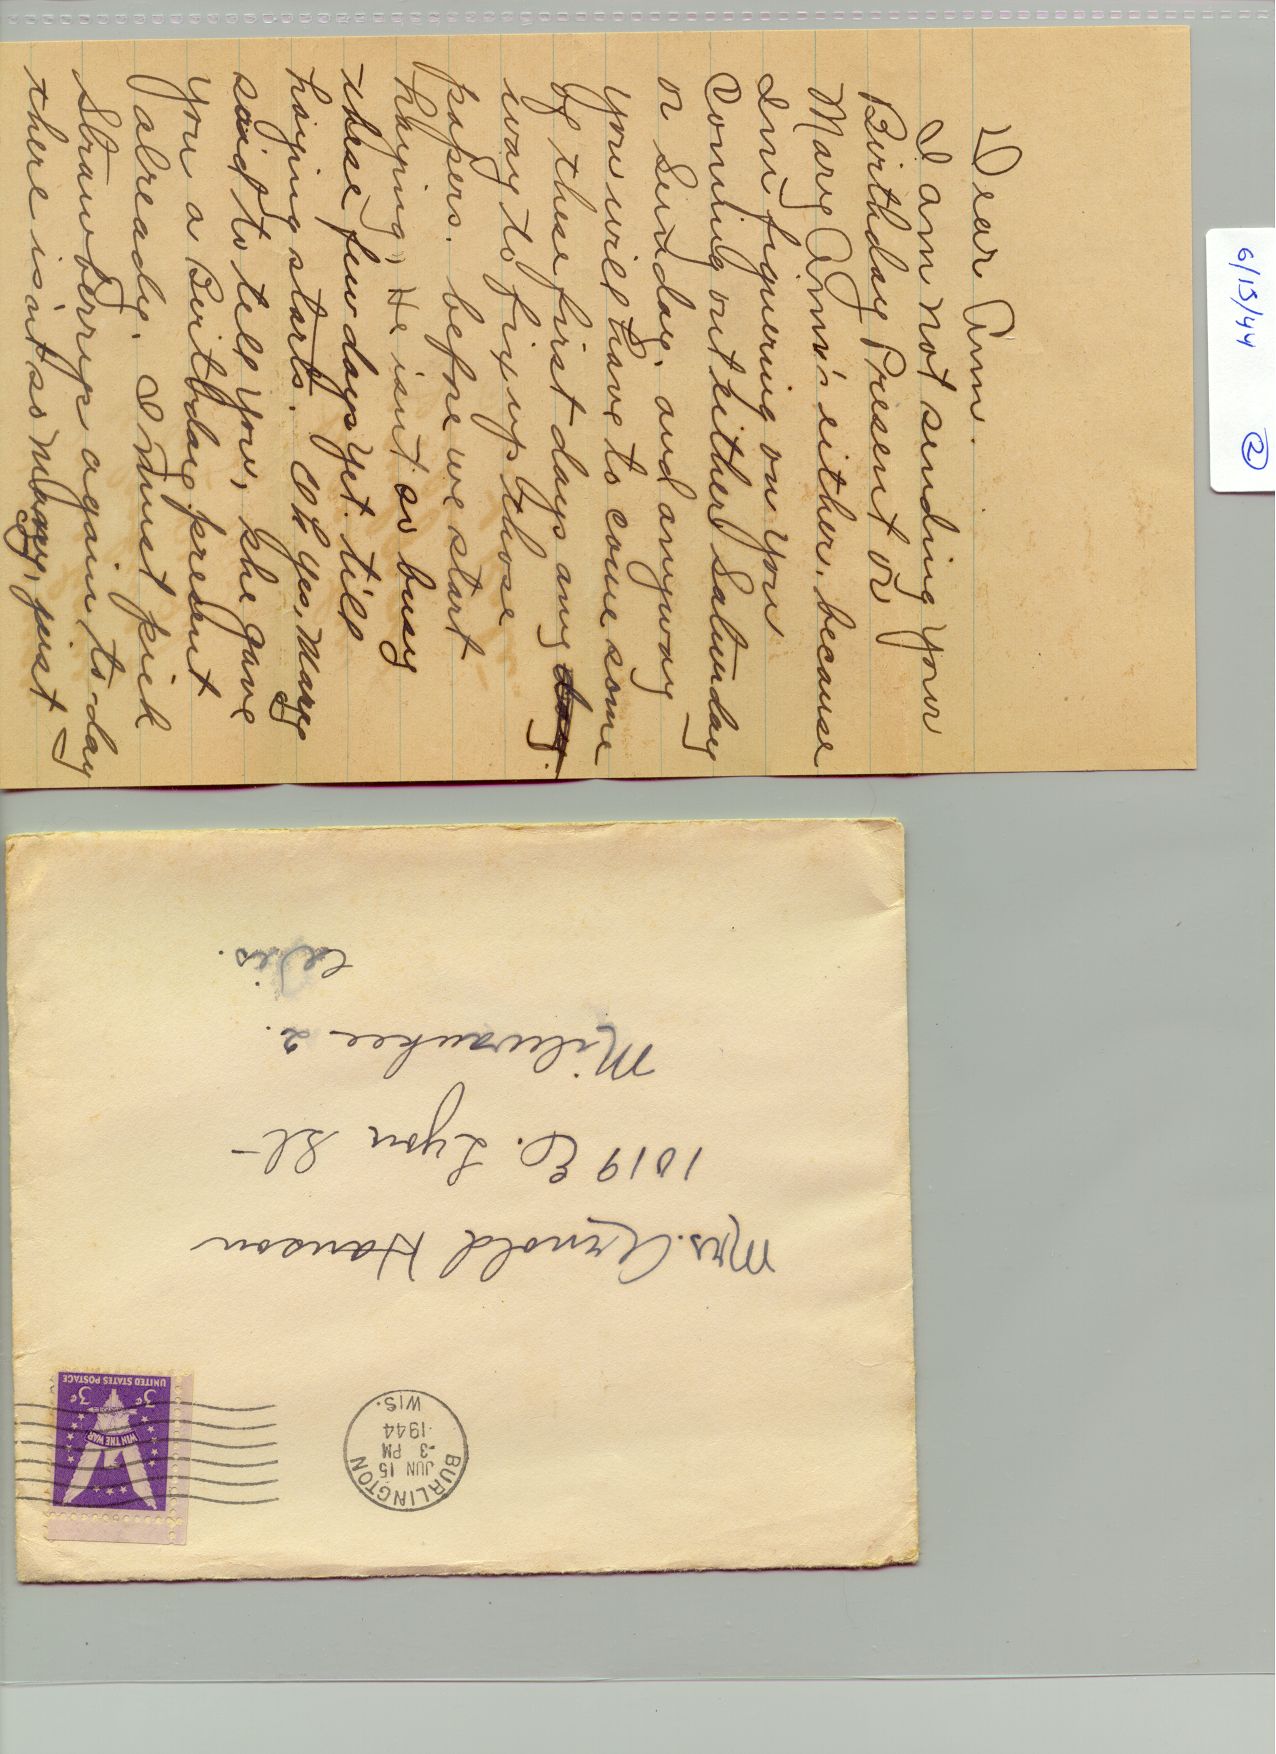 Dear Ann.
I am not sending your
Birthday Present or
Mary Ann's either, because
I'm figuering on you
Coming out either Saturday
or Sunday. and anyway
you will have to come some
of these first days any day.
way to fix up those
papers. before we start
haying, He isn't so busy
these few days yet till
haying starts. Oh yes, Mary
said to tell you, she gave
you a Birthday present
already. I must pick
Strawberrys again to-day
there isn't so many, just
6/15/44 2
Mrs. Arnold Hanson
1019 E. Lyon St-
Milwaukee 2.
Wis.
BURLINGTON
JUN 15
-3 PM
1944
WIS.
UNITED STATES POSTAGE
3¢ 3¢
WIN THE WAR